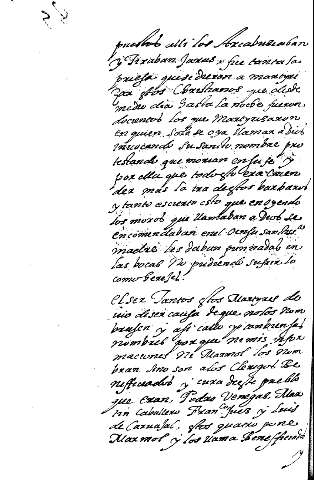 pueblos alli los Arcabuseaban
y tiraban Jaras y fue tanta la
priesa que se dieron a martyri
zar estos Christianos que desde
medio dia hasta la noche fueron
docientos los que Martyrizaron
en quien solo se oya llamar a dios
invocando su santo nombre pro
testando que morian en su fe y
por ella que todo esto era encen
der mas la ira de estos barbaros
y tanto es cierto esto que en oyendo
los moros que llamaban a Dios o se
encomendaban en el
madre les daban puñadas en
las bocas no pudiendo sufrir lo
como hereges.
El ser Tantos estos Martyres de
vio de ser causa de que no los nom
brasen y asi callo yo tambien sus
nombres por que ni mis infor
maciones ni Marmol los nom
bran sino son a los Clerigos Be
neficiados y cura de este pueblo
que eran Pedro Venegas, Mar
tin Caballero Fran.co Juez y Luis
de Carvajal, estos quatro pone
Marmol y los llama Beneficiados
y